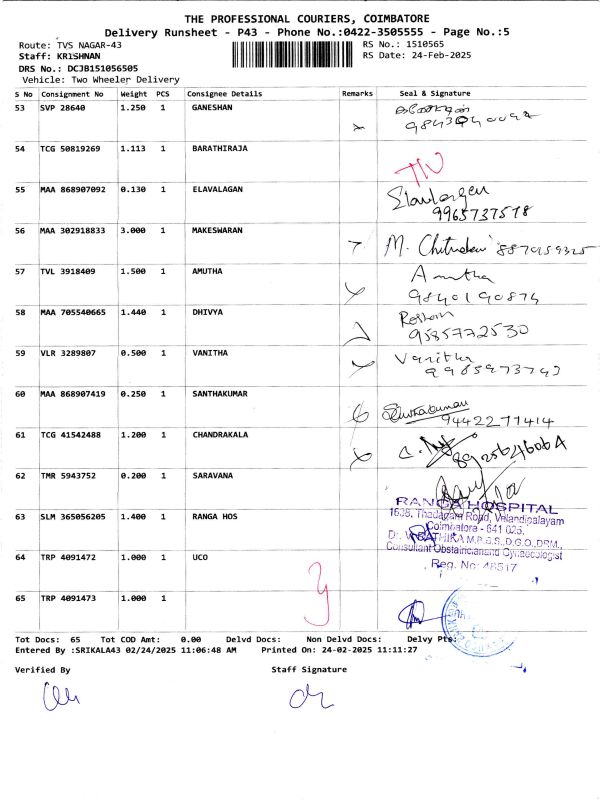 THE PROFESSIONAL COURIERS, COIMBATORE
Delivery Runsheet - P43 - Phone No.:0422-3505555 - Page No.:5
Route: TVS NAGAR-43 RS No.: 1510565
Staff: KRISHNAN RS Date: 24-Feb-2025
DRS No.: DCJB151056505
Vehicle: Two Wheeler Delivery
S No Consignment No Weight PCS Consignee Details Remarks Seal & Signature
53 SVP 28640 1.250 1 GANESHAN
54 TCG 50819269 1.113 1 BARATHIRAJA
55 MAA 868907092 0.130 1 ELAVALAGAN Elavalagan
9965737578
56 MAA 302918833 3.000 1 MAKESWARAN
57 TVL 3918409 1.500 1 AMUTHA Amutha
9840190874
58 MAA 705540665 1.440 1 DHIVYA
9585772530
59 VLR 3289807 0.500 1 VANITHA Vanitha
9985973743
60 MAA 868907419 0.250 1 SANTHAKUMAR
9442277414
61 TCG 41542488 1.200 1 CHANDRAKALA
8925646064
62 TMR 5943752 0.200 1 SARAVANA
63 SLM 365056205 1.400 1 RANGA HOS
RANGA HOSPITAL
1608, Thadagam Road, Velandipalayam
Coimbatore - 641 025.
M.B.B.S.,D.G.O.,DRM.,
Consultant Obstetrician and Gynaecologist
Reg. No: 48517
64 TRP 4091472 1.000 1 UCO
65 TRP 4091473 1.000 1
Tot Docs: 65 Tot COD Amt: 0.00 Delvd Docs: Non Delvd Docs: Delvy Pts:
Entered By :SRIKALA43 02/24/2025 11:06:48 AM Printed On: 24-02-2025 11:11:27
Verified By Staff Signature